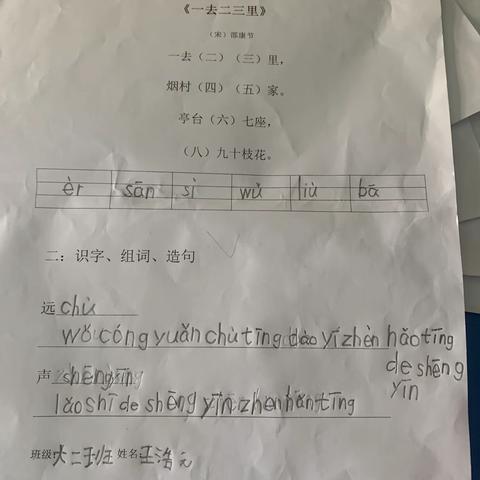 《一去二三里》
（宋）邵康节
一去（二）（三）里，
烟村（四）（五）家。
亭台（六）七座，
（八）九十枝花。
èr sān sì wǔ liù bā
二：识字、组词、造句
远chù
wǒ cóng yuǎn chù tīng dào yí zhèn hǎo tīng
de shēng
yīn
声shēng yīn
lǎo shī de shēng yīn zhēn hǎn tīng
班级:大二班 姓名:王浩元